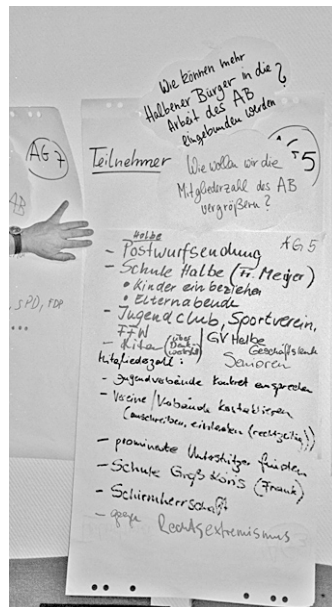 Wie können mehr
Halbener Bürger in die ?
Arbeit des AB
eingebunden werden
AG 7
AB
SPD, FDP
...
Teilnehmer
AG 5
Wie wollen wir die
Mitgliederzahl des AB
vergrößern?
AG. 5
Halbe
- Postwurfsendung
- Schule Halbe (Fr. Meijer)
• Kinder einbeziehen
• Elternabende
- Jugendclub, Sportverein,
FFW
GV Halbe
- Kitas (über
Senioren
Mitgliederzahl:
- Jugendverbände konkret ansprechen
- Vereine / Verbände kontaktieren
(anschreiben, einladen (rechtzeitig))
- prominente Unterstützer finden
- Schule Groß Köris (Frank)
- Schirmherrschaft
- gegen Rechtsextremismus